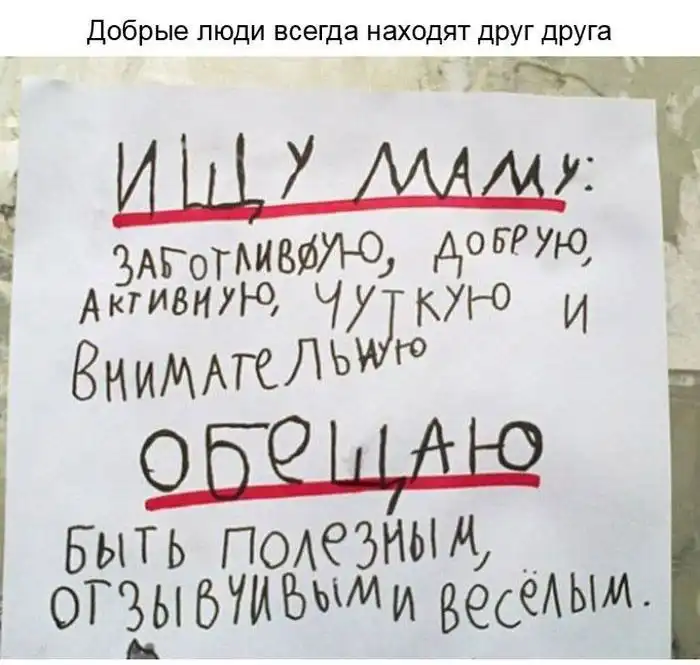 Добрые люди всегда находят друг друга
ИЩУ МАМУ:
ЗАБОТЛИВУЮ, ДОБРУЮ,
АКТИВНУЮ, ЧУТКУЮ И
ВНИМАТЕЛЬНУЮ
ОБЕЩАЮ
БЫТЬ ПОЛЕЗНЫМ,
ОТЗЫВЧИВЫМ И ВЕСЁЛЫМ.